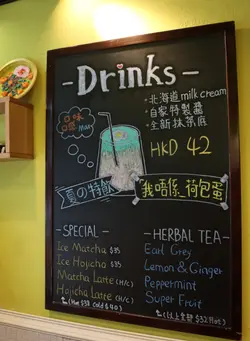 - Drinks -
・北海道 milk cream
・自家特製醬
・全新抹茶底
HKD 42
口味
夏の特飲
我唔係 荷包蛋
- SPECIAL -
Ice Matcha $35
Ice Hojicho $35
Matcha Latte (H/C)
Hojicha Latte (H/C)
(Hot $38 Cold $40)
- HERBAL TEA -
Earl Grey
Lemon & Ginger
Peppermint
Super Fruit
(以上全部 $32/Hot)